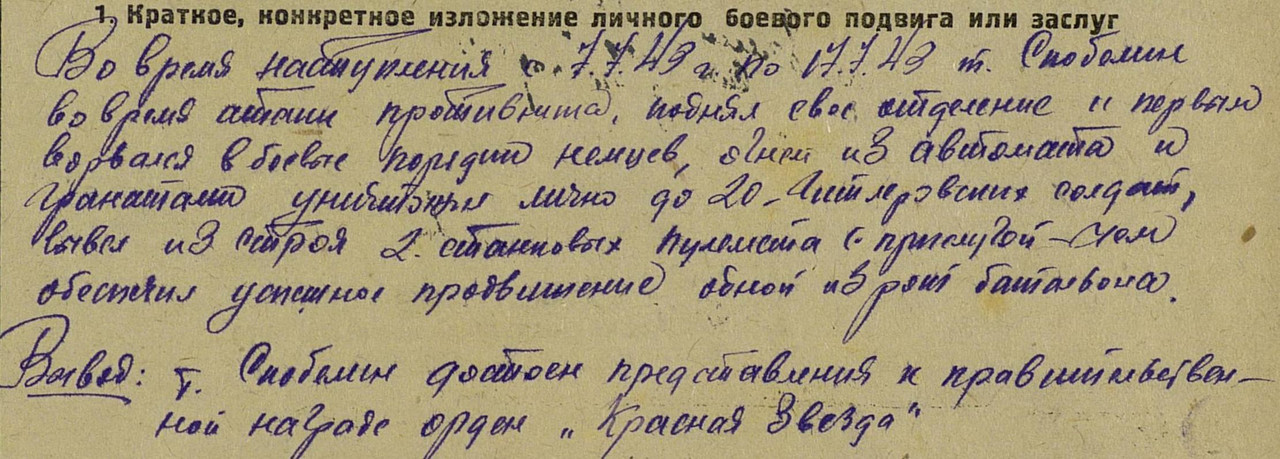 1. Краткое, конкретное изложение личного боевого подвига или заслуг
Во время наступления с 7.7.43 г. по 17.7.43 т. Скобелин
во время атаки противника, поднял свое отделение и первым
ворвался в боевые порядки немцев, огнем из автомата и
гранатами уничтожил лично до 20-Гитлеровских солдат,
вывел из строя 2. станковых пулемета с прислугой - чем
обеспечил успешное продвижение одной из рот батальона.
Вывод: т. Скобелин достоен представления к правительствен-
ной награде орден „Красная Звезда"